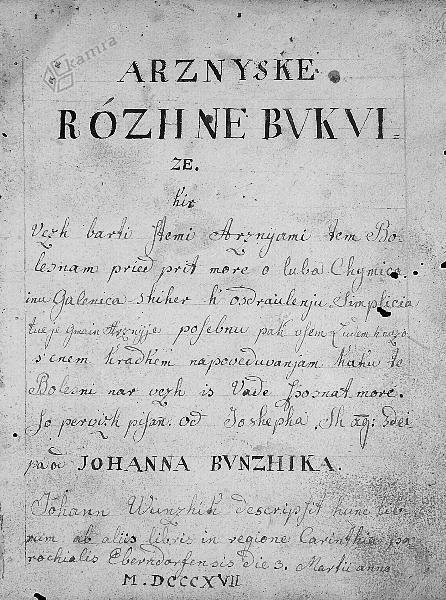 kamra
ARZNYSKE
RÓZHNE BVKVI=
ZE.
Kir
Vezh barti stemi Arznyami tem Bo-
lesnam pried prit more o luba Chymica
inu Galenica skiher k' osdraulenju Simplicia
tu je gmain Arznyje posebnu pak usem Ludem
s'enem kradkem napoveduvanjam kaku te
Bolesni nar vezh is Vade sposnat more.
So pervizh pisan. od Joshepha
pa od JOHANNA BVNZHIKA.
Johann Wunzhik descripsit hunc
rum ab aliis libris in regione Carinthia pa
rochialis Eberndorfensis Die 3. Martii anno
M.DCCCXVII